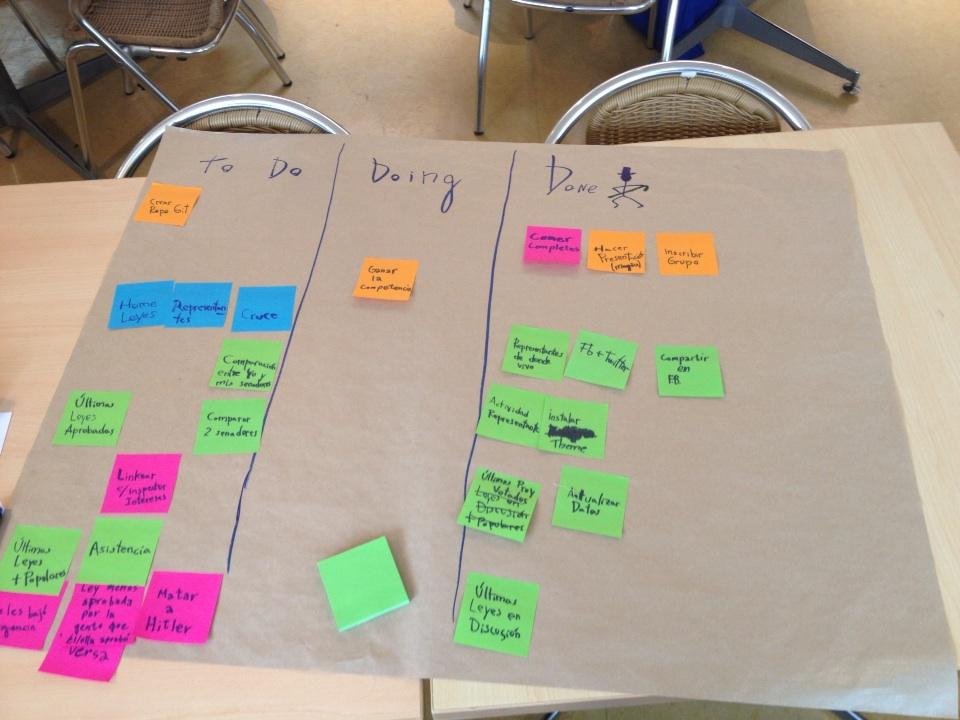 To Do
Doing
Done
Crear
Repo Git
Home
Leyes
Representan-
tes
Cruce
Comparación
entre Yo y
mis senadores
Últimas
Leyes
Aprobadas
Comparar
2 senadores
Linkear
c/inspector
Intereses
Últimas
Leyes
+ Populares
Asistencia
les bajó
Ley menos
aprobada
por la
gente que
él/ella aprobó
versa
Matar
a
Hitler
Ganar
la
Competencia
Comer
Completos
Hacer
Presentación
Inscribir
Grupo
Representantes
de donde
vivo
Fb + Twitter
Compartir
en
FB.
Actividad
Representante
instalar
Theme
Últimos Proy
Votados
Leyes en
Discusión
+ Populares
Actualizar
Datos
Últimas
Leyes en
Discusión